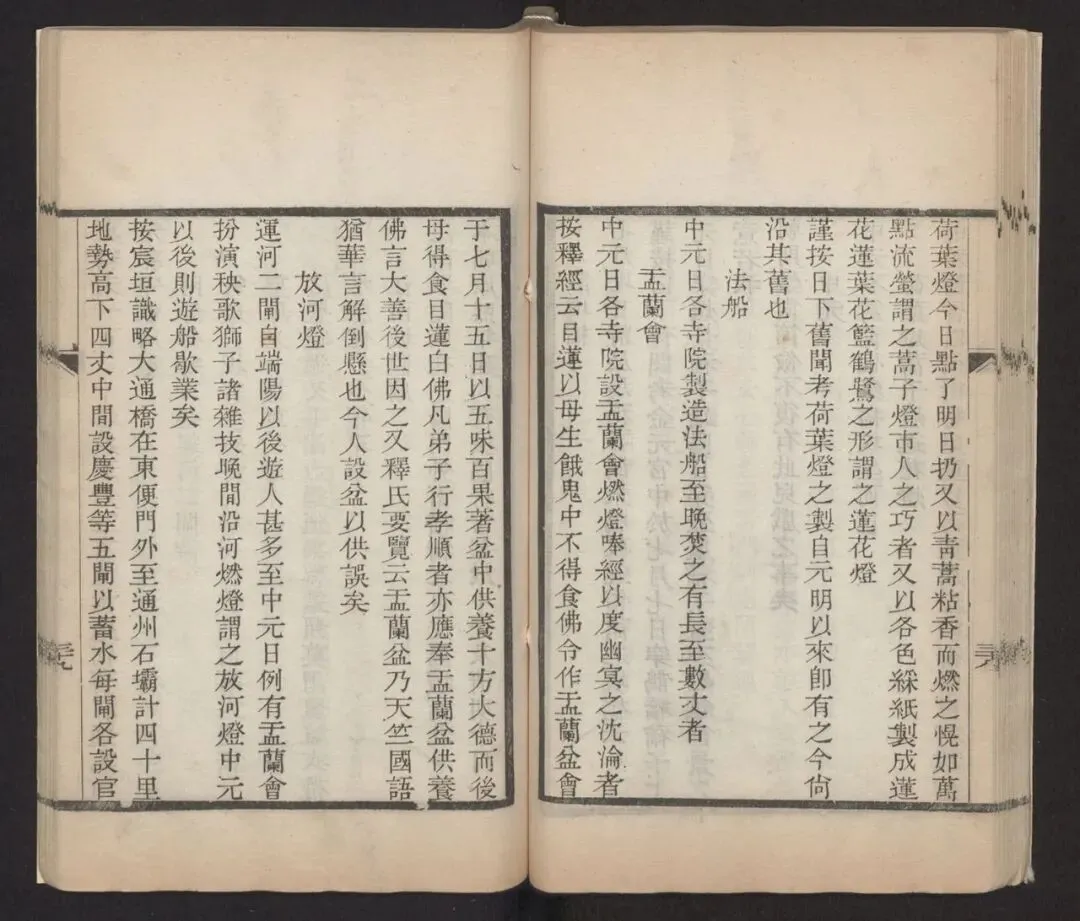 荷葉燈今日點了明日扔又以靑蒿粘香而燃之恍如萬
點流螢謂之蒿子燈市人之巧者又以各色綵紙製成蓮
花蓮葉花籃鶴鷺之形謂之蓮花燈
謹按日下舊聞考荷葉燈之製自元明以來卽有之今尙
沿其舊也
法船
中元日各寺院製造法船至晚焚之有長至數丈者
盂蘭會
中元日各寺院設盂蘭會燃燈唪經以度幽冥之沈淪者
按釋經云目蓮以母生餓鬼中不得食佛令作盂蘭盆會
于七月十五日以五味百果著盆中供養十方大德而後
母得食目蓮白佛凡弟子行孝順者亦應奉盂蘭盆供養
佛言大善後世因之又釋氏要覽云盂蘭盆乃天竺國語
猶華言解倒懸也今人設盆以供誤矣
放河燈
運河二閘自端陽以後遊人甚多至中元日例有盂蘭會
扮演秧歌獅子諸雜技晚間沿河燃燈謂之放河燈中元
以後則遊船歇業矣
按宸垣識略大通橋在東便門外至通州石壩計四十里
地勢高下四丈中間設慶豐等五閘以蓄水每閘各設官